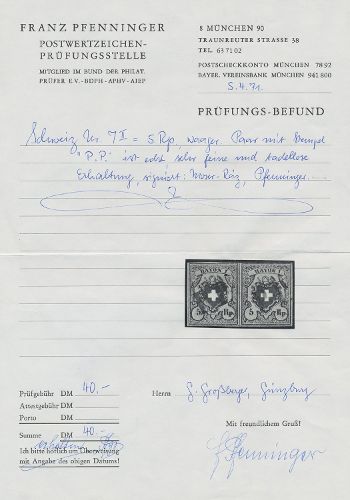 FRANZ PFENNINGER
POSTWERTZEICHEN-
PRÜFUNGSSTELLE
MITGLIED IM BUND DER PHILAT.
PRÜFER E.V. - BDPH - APHV - AIEP
8 MÜNCHEN 90
TRAUNREUTER STRASSE 38
TEL. 63 71 02
POSTSCHECKKONTO MÜNCHEN 78 92
BAYER. VEREINSBANK MÜNCHEN 941 800
5.4.71.
PRÜFUNGS-BEFUND
Schweiz Nr. 7 II = 5 Rp, waager. Paar mit Stempel
"P.P." ist echt sehr feine und tadellose
Erhaltung, signiert: Moser-Räz, Pfenninger.
RAYON I RAYON I
5 Rp. 5 Rp.
Prüfgebühr DM 40,-
Attestgebühr DM
Porto DM
Summe DM 40,-
erhalten
Ich bitte höflich um Überweisung
mit Angabe des obigen Datums!
Herrn G. Großberger, Günzburg
Mit freundlichem Gruß!
F. Pfenninger